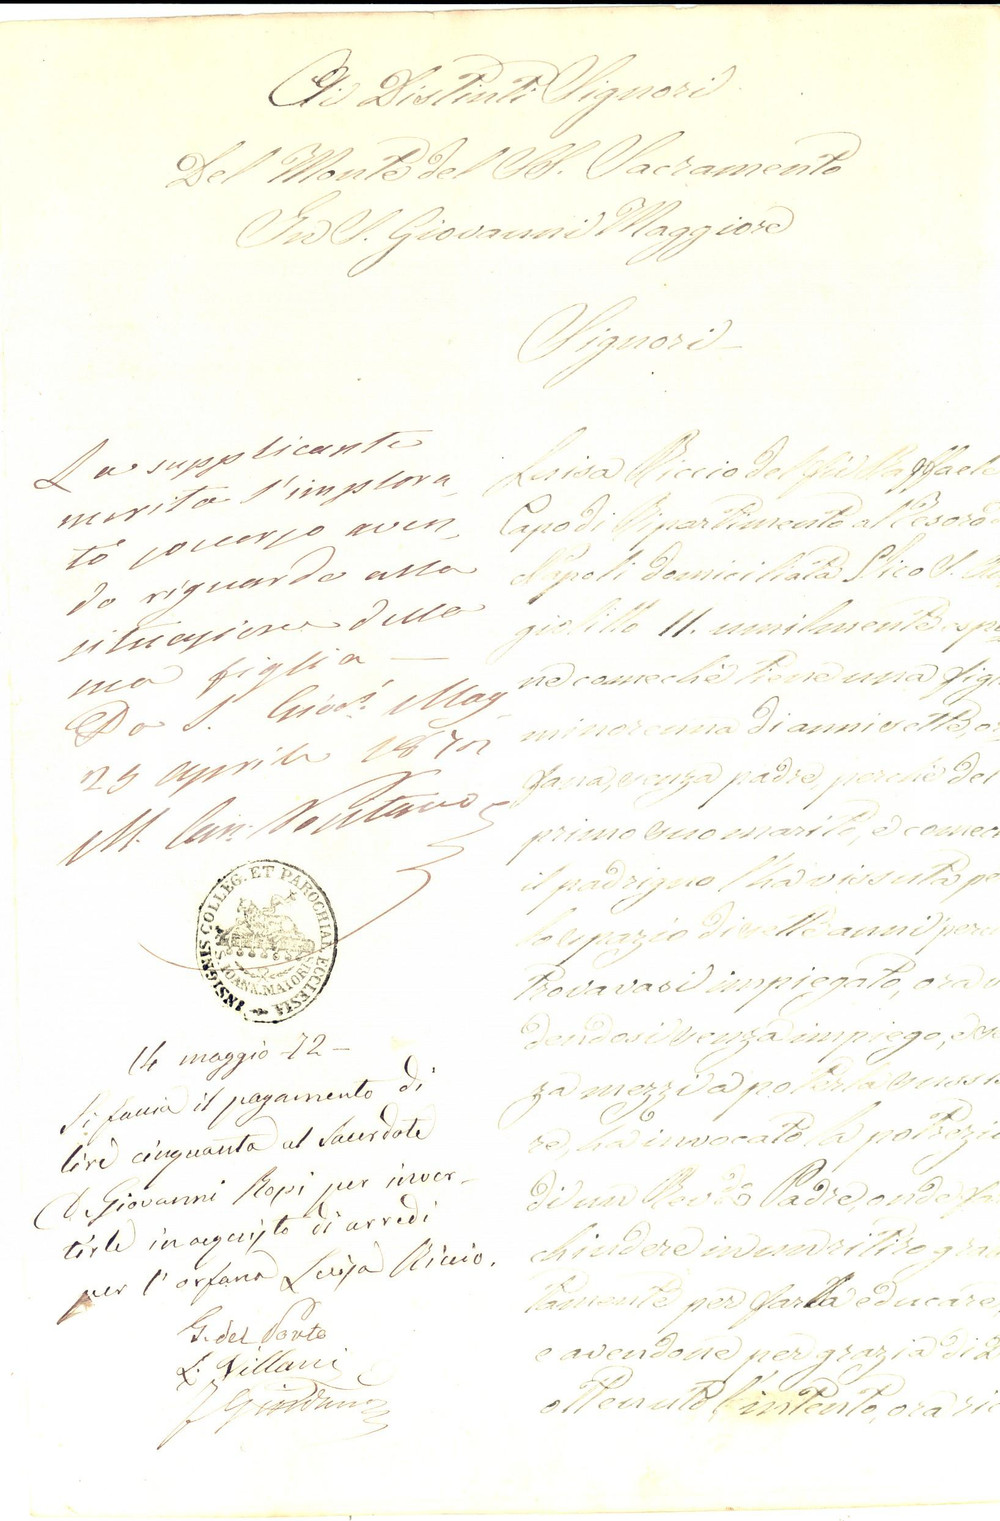 Ai Distinti Signori
Del Monte del SS. Sacramento
In S. Giovanni Maggiore
Signori
La supplicante
merita l'implora
to soccorso aven
do riguardo alla
situazione della
sua figlia
Da S. Giov. Mag
29 aprile 1872
INSIGNIS COLLEG. ET PAROCHIAL ECCLESIA
S. JOANN. MAIORIS
14 maggio 72
Si faccia il pagamento di
lire cinquanta al Sacerdote
Giovanni Ropi per inver-
tirle in acquisto di arredi
per l'orfana Luisa Riccio.
G. del Porto
L. Villani
Giordano
Luisa Riccio del fù Raffaele
Capo di Ripartimento al Tesoro
Napoli domiciliata Vico S.
11. umilmente espo
ne comeche tiene una figl
minorenna di anni sette, or
fana, senza padre, perchè del
primo suo marito, e comec
il padrigno l'ha vissuta pe
lo spazio di sette anni perc
trovavasi impiegato, ora
dendosi senza impiego, e sen
za mezzi a poterla sussiste
re, ha invocato la potrezio
di un Revdo Padre, onde fa
chiudere in un ritiro gra
tamente per farla educare,
e avendone per grazia di
ottenuto l'intento, ora ric